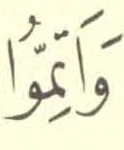 وَاَتِمُّوا